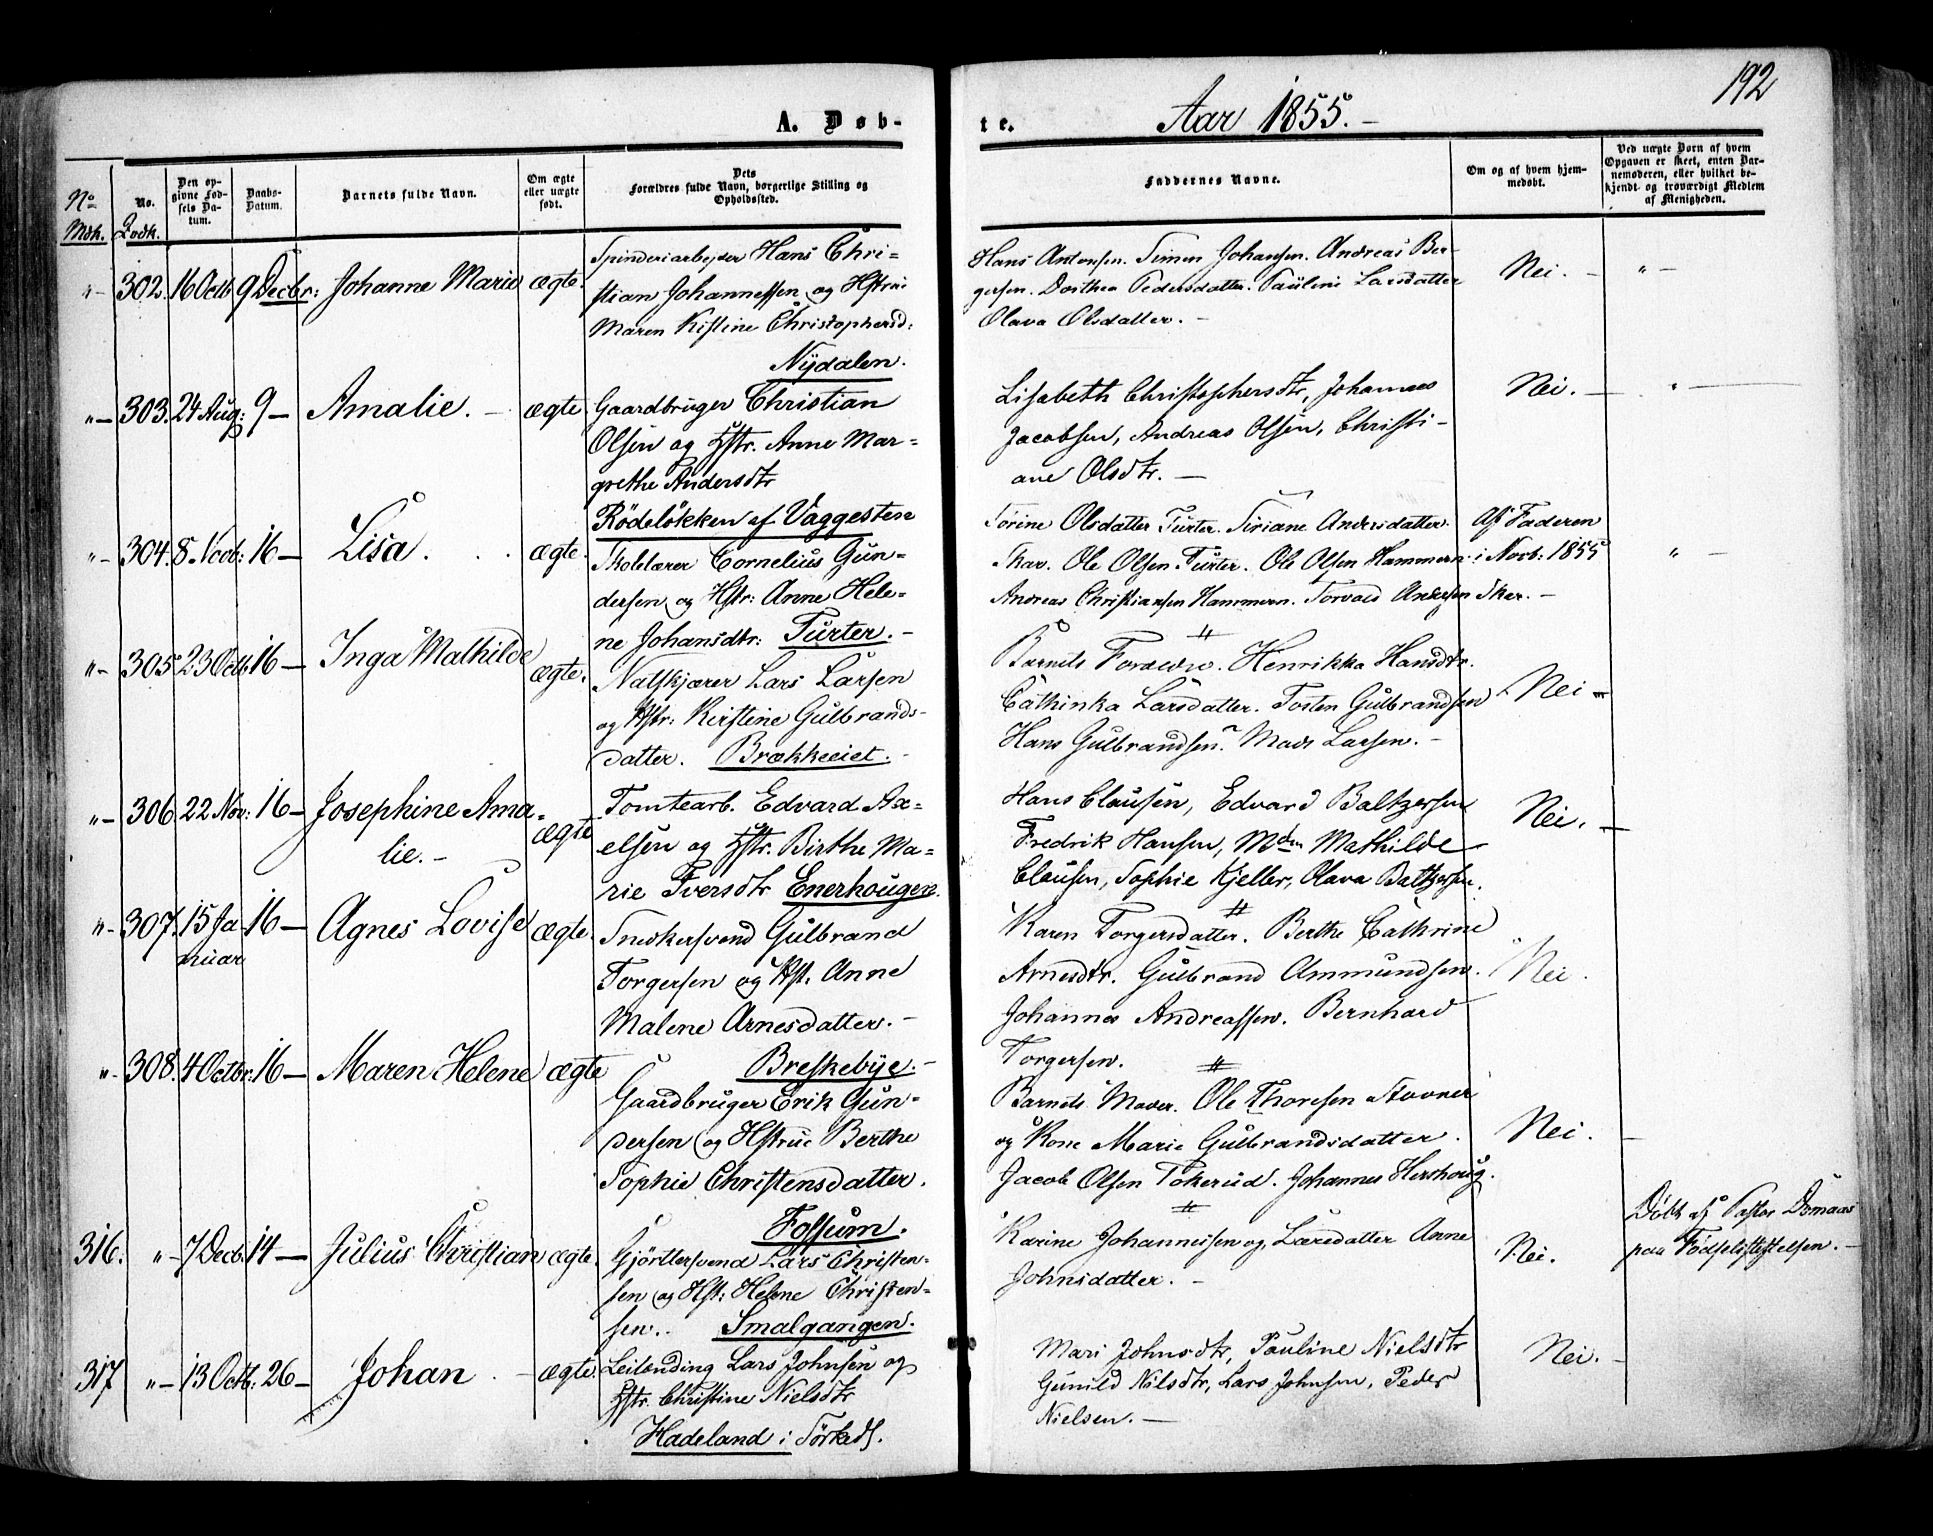 192
A. Døb-
te.
Aar 1855. -
No Mdk.
No. Qvdk.
Den op-
givne Fød-
sels Da-
tum.
Daabs-
Datum.
Barnets fulde Navn.
Om ægte
eller uægte
født.
Dets
Forældres fulde Navn, borgerlige Stilling og
Opholdssted.
Faddernes Navne.
Om og af hvem hjem-
medøbt.
Ved uægte Børn af hvem
Opgaven er skeet, enten Bar-
nemoderen, eller hvilket be-
kjendt og troværdigt Medlem
af Menigheden.
"- 302. 16 Octb 9 Decbr: Johanne Marie ægte.
Spinderiarbeyder Hans Chri-
stian Johannessen og Hstrue
Maren Kistine Christophersd:
Nydalen.
Hans Antonsen. Simen Johansen. Andreas Ber-
gersen. Dorthea Pedersdatter. Pauline Larsdatter
Olava Olsdatter. -
Nei. - " -
"- 303. 24 Aug: 9 - Amalie. - ægte
Gaardbruger Christian
Olsen og Hstr. Anne Mar-
grethe Andersdtr
Rödelökken af Vaggesten
Lisabeth Christophersdtr, Johannes
Jacobsen, Andreas Olsen, Christi-
ane Olsdtr. -
Nei. - " -
"- 304. 8. Novb: 16 - Lisa. ægte.
Skolelærer Cornelius Gun-
dersen og Hstr: Anne Hele-
ne Johansdtr: Furter. -
Torine Olsdatter Furter. Siriane Andersdatter
Skar. Ole Olsen Furter. Ole Olsen Hammern
Andreas Christiansen Hammern. Torvald Andersen Sker. -
Af Faderen
i Novb: 1855
" -
"- 305. 23 Octb 16 - Inga Mathilde ægte.
Natskjører Lars Larsen
og Hstr: Kirstine Gulbrands-
datter. Brækkeeiet. -
Barnets Forældre. Henrikka Hansdtr.
Cathinka Larsdatter. Tosten Gulbrandsen
Hans Gulbrandsen. Mads Larsen. -
Nei -
"- 306. 22 Nov: 16 - Josephine Ama-
lie. - ægte
Tomtearb. Edvard Ax-
elsen og Hstr. Birthe Ma-
rie Iversdtr Enerhougen.
Hans Clausen, Edvard Baltzersen
Fredrik Hansen, Mdm Mathilde
Clausen, Sophie Kjeller, Olava Baltzersen.
Nei. -
"- 307. 15 Ja
nuar 16 - Agnes Lovise ægte.
Snedkersvend Gulbrand
Torgersen og Hst. Anne
Malene Arnesdatter. -
Breskebye. -
Karen Torgersdatter. Berthe Cathrine
Arnesdtr. Gulbrand Ammundsen.
Johannes Andreassen. Bernhard
Torgersen.
Nei.
"- 308. 4 Octbr: 16 - Maren Helene ægte
Gaardbruger Erik Gun-
dersen og Hstrue Berthe
Sophie Christensdatter.
Fossum.
Barnets Moder. Ole Thoresen Stovner
og Kone Marie Gulbrandsdatter.
Jacob Olsen Tokerud. Johannes Hershoug.
Nei. -
316. "- 7 Decb. 14 - Julius Christian ægte.
Gjörtlersvend Lars Christen-
sen og Hst: Helene Christen-
sen. Smalgangen.
Karine Johannessen og Læredatter Anne
Johnsdatter. -
Nei.
Döbt af Pastor
paa Födselsstiftelsen. -
317 "- 13 Octb: 26 - Johan. - ægte.
Leilænding Lars Johnsen og
Hstr. Christine Nielsdtr
Hadeland i
Mari Johnsdtr, Pauline Nielsdtr
Gunild Nilsdtr, Lars Johnsen, Peder
Nielsen. -
Nei. -